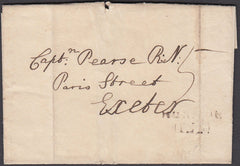 Captn Pearse R.N.
5
Paris Street
Exeter